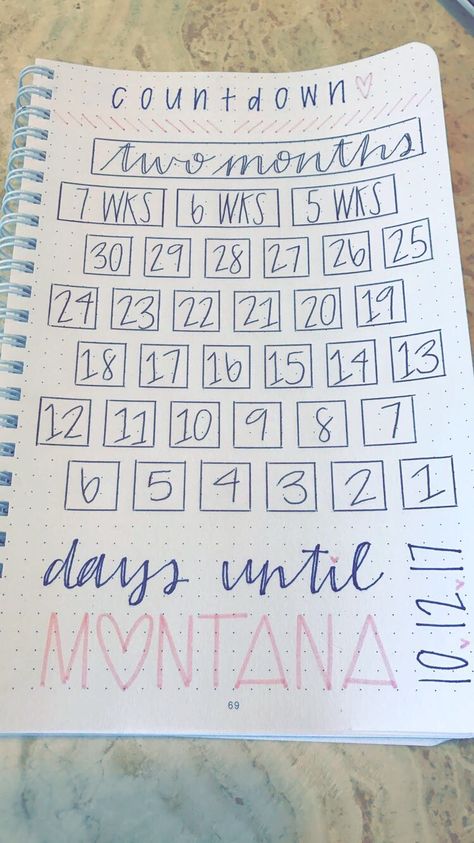 countdown
two months
7 WKS 6 WKS 5 WKS
30 29 28 27 26 25
24 23 22 21 20 19
18 17 16 15 14 13
12 11 10 9 8 7
6 5 4 3 2 1
days until
MONTANA
10.12.17
69